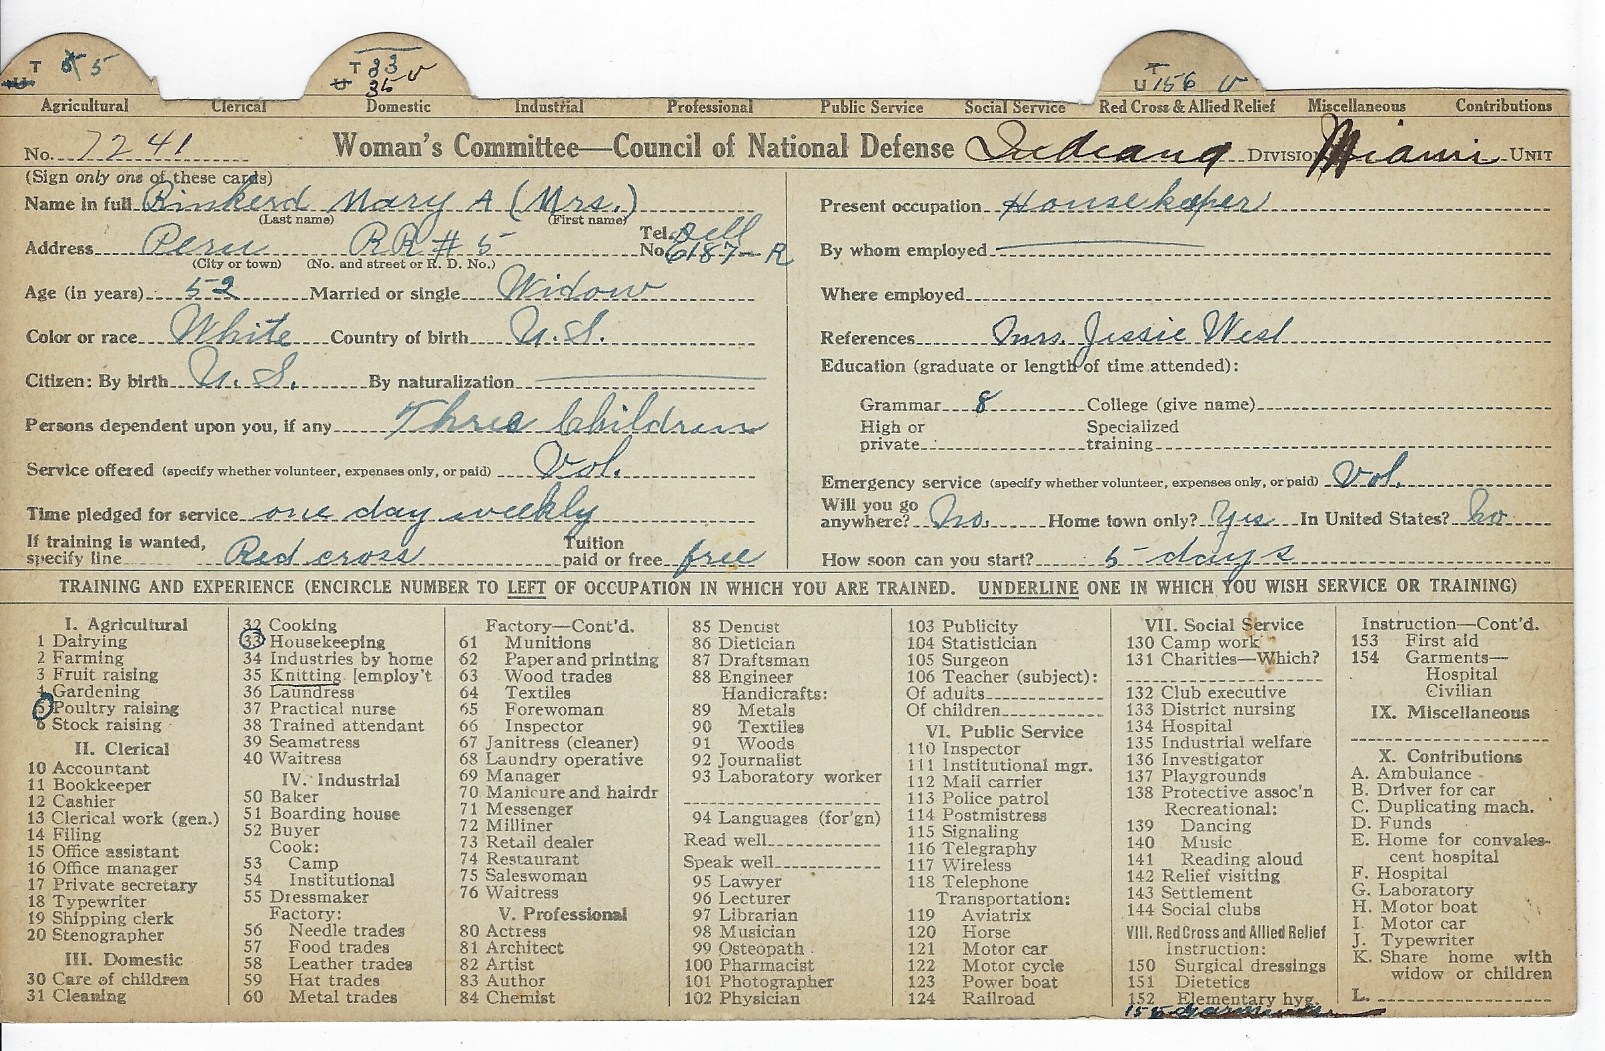 T 5
U
T 33
U 35 v
T
U 156 v
Agricultural Clerical Domestic Industrial Professional Public Service Social Service Red Cross & Allied Relief Miscellaneous Contributions
No. 7241 Woman's Committee—Council of National Defense Indiana Division Miami Unit
(Sign only one of these cards)
Name in full Rinkerd Mary A (Mrs.)
(Last name) (First name)
Address Peru RR # 5 Tel. No. Bell 6187-R
(City or town) (No. and street or R. D. No.)
Age (in years) 52 Married or single Widow
Color or race White Country of birth U.S.
Citizen: By birth U.S. By naturalization
Persons dependent upon you, if any Three Children
Service offered (specify whether volunteer, expenses only, or paid) Vol.
Time pledged for service one day weekly
If training is wanted, specify line Red cross Tuition paid or free free
Present occupation Housekeeper
By whom employed
Where employed
References Mrs. Jessie West
Education (graduate or length of time attended):
Grammar 8 College (give name)
High or private Specialized training
Emergency service (specify whether volunteer, expenses only, or paid) Vol.
Will you go anywhere? No. Home town only? Yes In United States? no
How soon can you start? 5 days
TRAINING AND EXPERIENCE (ENCIRCLE NUMBER TO LEFT OF OCCUPATION IN WHICH YOU ARE TRAINED. UNDERLINE ONE IN WHICH YOU WISH SERVICE OR TRAINING)
I. Agricultural
1 Dairying
2 Farming
3 Fruit raising
4 Gardening
5 Poultry raising
6 Stock raising
II. Clerical
10 Accountant
11 Bookkeeper
12 Cashier
13 Clerical work (gen.)
14 Filing
15 Office assistant
16 Office manager
17 Private secretary
18 Typewriter
19 Shipping clerk
20 Stenographer
III. Domestic
30 Care of children
31 Cleaning
32 Cooking
33 Housekeeping
34 Industries by home
35 Knitting [employ't
36 Laundress
37 Practical nurse
38 Trained attendant
39 Seamstress
40 Waitress
IV. Industrial
50 Baker
51 Boarding house
52 Buyer
Cook:
53 Camp
54 Institutional
55 Dressmaker
Factory:
56 Needle trades
57 Food trades
58 Leather trades
59 Hat trades
60 Metal trades
Factory—Cont'd.
61 Munitions
62 Paper and printing
63 Wood trades
64 Textiles
65 Forewoman
66 Inspector
67 Janitress (cleaner)
68 Laundry operative
69 Manager
70 Manicure and hairdr
71 Messenger
72 Milliner
73 Retail dealer
74 Restaurant
75 Saleswoman
76 Waitress
V. Professional
80 Actress
81 Architect
82 Artist
83 Author
84 Chemist
85 Dentist
86 Dietician
87 Draftsman
88 Engineer
Handicrafts:
89 Metals
90 Textiles
91 Woods
92 Journalist
93 Laboratory worker
94 Languages (for'gn)
Read well
Speak well
95 Lawyer
96 Lecturer
97 Librarian
98 Musician
99 Osteopath
100 Pharmacist
101 Photographer
102 Physician
103 Publicity
104 Statistician
105 Surgeon
106 Teacher (subject):
Of adults
Of children
VI. Public Service
110 Inspector
111 Institutional mgr.
112 Mail carrier
113 Police patrol
114 Postmistress
115 Signaling
116 Telegraphy
117 Wireless
118 Telephone
Transportation:
119 Aviatrix
120 Horse
121 Motor car
122 Motor cycle
123 Power boat
124 Railroad
VII. Social Service
130 Camp work
131 Charities—Which?
132 Club executive
133 District nursing
134 Hospital
135 Industrial welfare
136 Investigator
137 Playgrounds
138 Protective assoc'n
Recreational:
139 Dancing
140 Music
141 Reading aloud
142 Relief visiting
143 Settlement
144 Social clubs
VIII. Red Cross and Allied Relief
Instruction:
150 Surgical dressings
151 Dietetics
152 Elementary hyg.
Instruction—Cont'd.
153 First aid
154 Garments—
Hospital
Civilian
IX. Miscellaneous
X. Contributions
A. Ambulance
B. Driver for car
C. Duplicating mach.
D. Funds
E. Home for convales-
cent hospital
F. Hospital
G. Laboratory
H. Motor boat
I. Motor car
J. Typewriter
K. Share home with
widow or children
L.